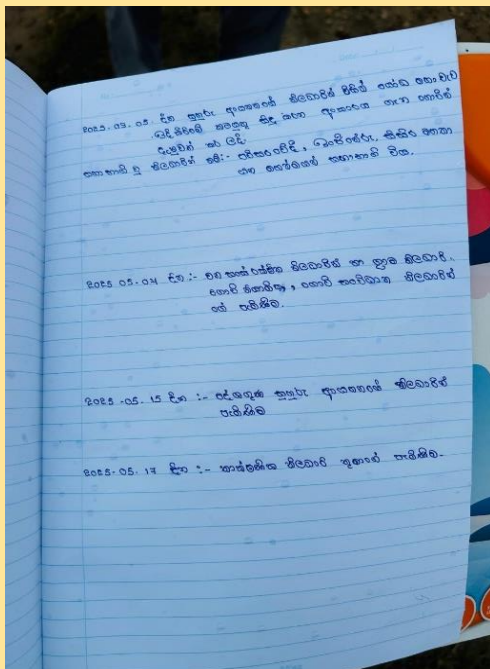 2025.03.05. දින සුහුරු ආයතනයේ නිලධාරීන් විසින් ගොඩ
ඉදිකිරීමේ කටයුතු සිදු කරන ආකාරය ගැන ගොවීන්
දැනුවත් කර ලදි.
සහභාගී වූ නිලධාරීන් නම්:- පරිසරවේදී, ඉංජිනේරු, සිසිර මහතා
සහභාගී විය.
2025 05.04 දින :- වන සංරක්ෂණ නිලධාරීන් හා ග්‍රාම නිලධාරී,
ගොවි නියෝජිත, ගොවි සංවිධාන නිලධාරීන්
ගේ පැමිණීම.
2025 -05. 15 දින :- දේශගුණ සුහුරු ආයතනයේ නිලධාරීන්
පැමිණීම
2025. 05. 17 දින :- තාක්ෂණික නිලධාරී තුමාගේ පැමිණීම.